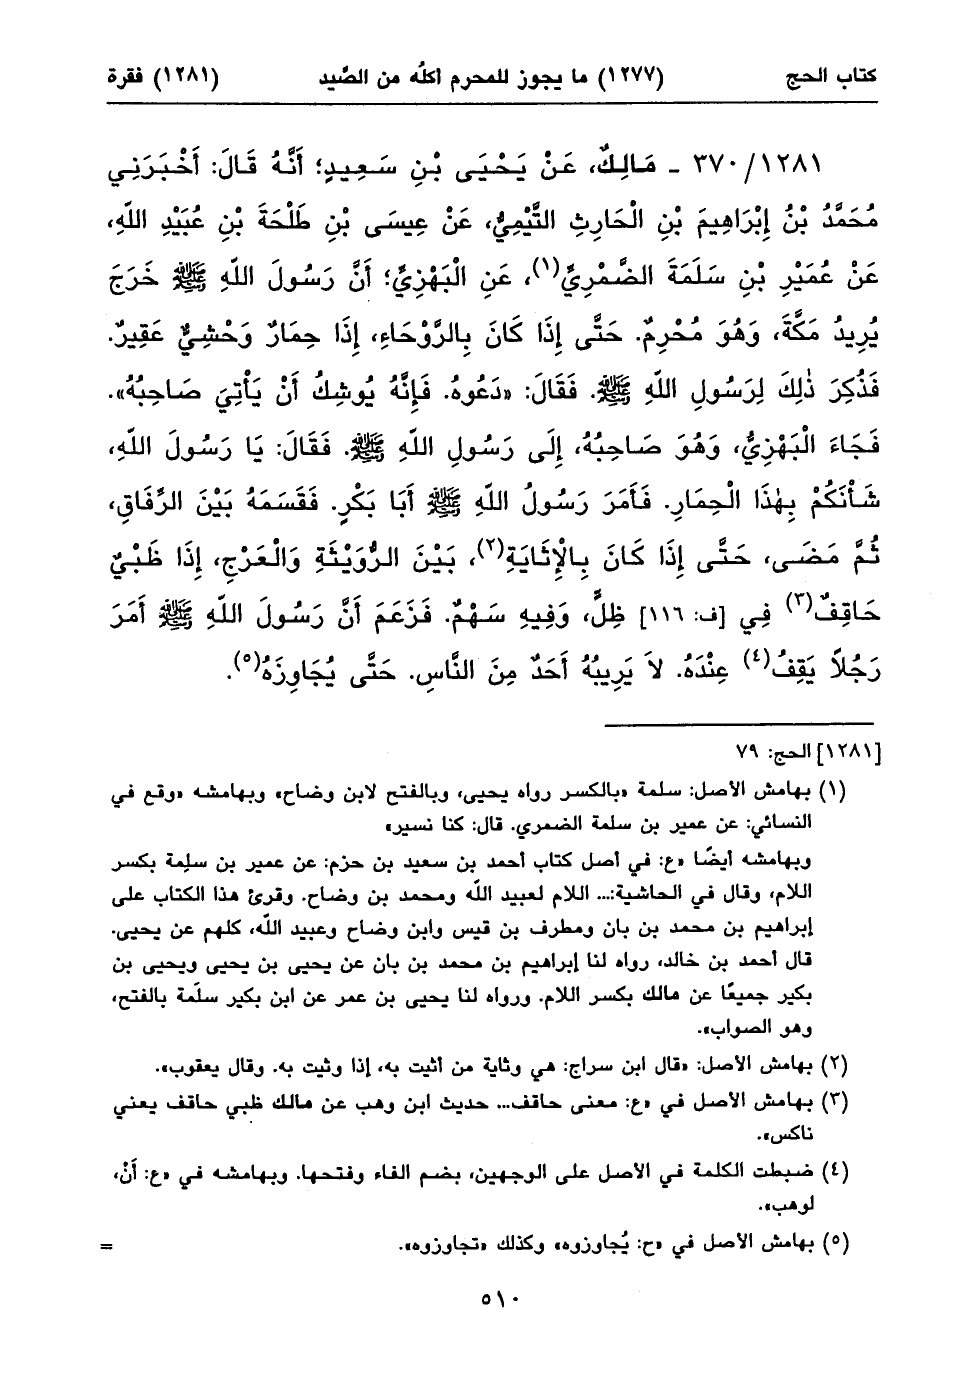 كتاب الحج (١٢٧٧) ما يجوز للمحرم أكلُه من الصَّيد (١٢٨١) فقرة
٣٧٠/١٢٨١ - مَالِكٌ، عَنْ يَحْيَى بْنِ سَعِيدٍ؛ أَنَّهُ قَالَ: أَخْبَرَنِي
مُحَمَّدُ بْنُ إِبْرَاهِيمَ بْنِ الْحَارِثِ التَّيْمِيُّ، عَنْ عِيسَى بْنِ طَلْحَةَ بْنِ عُبَيْدِ اللّهِ،
عَنْ عُمَيْرِ بْنِ سَلَمَةَ الضَّمْرِيِّ(١)، عَنِ الْبَهْزِيِّ؛ أَنَّ رَسُولَ اللّهِ ﷺ خَرَجَ
يُرِيدُ مَكَّةَ، وَهُوَ مُحْرِمٌ. حَتَّى إِذَا كَانَ بِالرَّوْحَاءِ، إِذَا حِمَارٌ وَحْشِيٌّ عَقِيرٌ.
فَذُكِرَ ذٰلِكَ لِرَسُولِ اللّهِ ﷺ. فَقَالَ: «دَعُوهُ. فَإِنَّهُ يُوشِكُ أَنْ يَأْتِيَ صَاحِبُهُ».
فَجَاءَ الْبَهْزِيُّ، وَهُوَ صَاحِبُهُ، إِلَى رَسُولِ اللّهِ ﷺ. فَقَالَ: يَا رَسُولَ اللّهِ،
شَأْنَكُمْ بِهٰذَا الْحِمَارِ. فَأَمَرَ رَسُولُ اللّهِ ﷺ أَبَا بَكْرٍ. فَقَسَمَهُ بَيْنَ الرِّفَاقِ،
ثُمَّ مَضَى، حَتَّى إِذَا كَانَ بِالْإِثَايَةِ(٢)، بَيْنَ الرُّوَيْثَةِ وَالْعَرْجِ، إِذَا ظَبْيٌ
حَاقِفٌ(٣) فِي [ف: ١١٦] ظِلٍّ، وَفِيهِ سَهْمٌ. فَزَعَمَ أَنَّ رَسُولَ اللّهِ ﷺ أَمَرَ
رَجُلاً يَقِفُ(٤) عِنْدَهُ. لاَ يَرِيبُهُ أَحَدٌ مِنَ النَّاسِ. حَتَّى يُجَاوِزَهُ(٥).
[١٢٨١] الحج: ٧٩
(١) بهامش الأصل: سلمة «بالكسر رواه يحيى، وبالفتح لابن وضاح» وبهامشه «وقع في
النسائي: عن عمير بن سلمة الضمري. قال: كنا نسير»
وبهامشه أيضًا «ع: في أصل كتاب أحمد بن سعيد بن حزم: عن عمير بن سلِمة بكسر
اللام، وقال في الحاشية:... اللام لعبيد الله ومحمد بن وضاح. وقرئ هذا الكتاب على
إبراهيم بن محمد بن بان ومطرف بن قيس وابن وضاح وعبيد الله، كلهم عن يحيى.
قال أحمد بن خالد، رواه لنا إبراهيم بن محمد بن بان عن يحيى بن يحيى ويحيى بن
بكير جميعًا عن مالك بكسر اللام. ورواه لنا يحيى بن عمر عن ابن بكير سلَمة بالفتح،
وهو الصواب».
(٢) بهامش الأصل: «قال ابن سراج: هي وثاية من أثيت به، إذا وثيت به. وقال يعقوب».
(٣) بهامش الأصل في «ع: معنى حاقف... حديث ابن وهب عن مالك ظبي حاقف يعني
ناكس».
(٤) ضبطت الكلمة في الأصل على الوجهين، بضم الفاء وفتحها. وبهامشه في «ع: أَنْ،
لوهب».
(٥) بهامش الأصل في «ح: يُجاوزوه» وكذلك «تجاوزوه». =
٥١٠